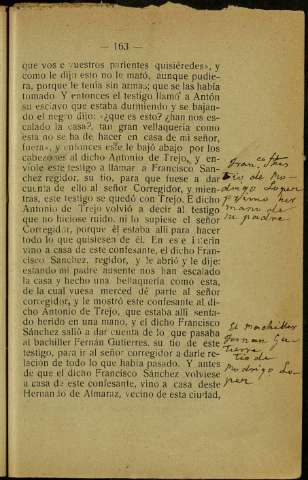 — 163 —
que vos e vuestros parientes quisiéredes», y
como le dijo esto no le mató, aunque pudie-
ra, porque le tenía sin armas; que se las había
tomado. Y entonces el testigo llamó a Antón
su esclavo que estaba durmiendo y se bajan-
do el negro dijo: «¿que es esto? ¿han nos es-
calado la casa?, tan gran vellaquería como
esta no se ha de hacer en casa de mi señor,
fuera», y entonces este le bajó abajo por los
cabezones al dicho Antonio de Trejo, y en-
vióle este testigo a llamar a Francisco San-
chez regidor, su tio, para que fuese a dar
cuenta de ello al señor Corregidor, y mien-
tras, este testigo se quedó con Trejo. E dicho
Antonio de Trejo volvió a decir al testigo
que no hiciese ruido, ni lo supiese el señor
Corregidor, porque él estaba allí para hacer
todo lo que quisiesen de él. En es e interin
vino a casa de este confesante, el dicho Fran-
cisco Sanchez, regidor, y le abrió y le dijo:
estando mi padre ausente nos han escalado
la casa y hecho una bellaquería como esta,
de la cual vuesa merced dé parte al señor
corregidor, y le mostró este confesante al di-
cho Antonio de Trejo, que estaba allí senta-
do herido en una mano, y el dicho Francisco
Sánchez salió a dar cuenta de lo que pasaba
al bachiller Fernán Gutierres, su tio de este
testigo, para ir al señor corregidor a darle re-
lación de todo lo que había pasado. Y antes
de que el dicho Francisco Sánchez volviese
a casa de este confesante, vino a casa deste
Hernando de Almaraz, vecino de esta ciudad,
Fran.co
tio de Ro-
drigo Lopez
y primo her
mano de
su padre
El bachiller
Fernan Gu-
tierrez
tio de
Rodrigo Lo-
pez